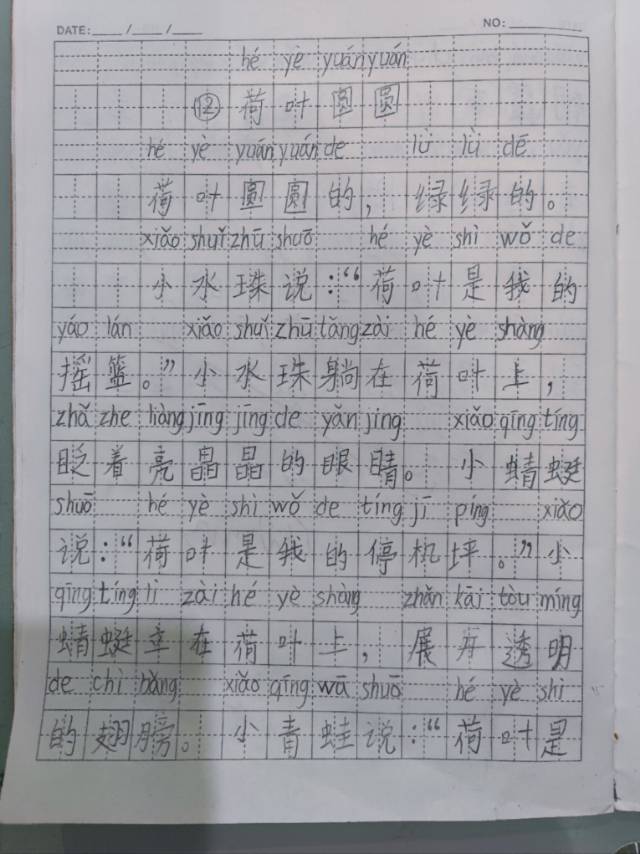 DATE: ___ / ___ / ___ NO: ________
hé yè yuán yuán
⑫ 荷叶圆圆
hé yè yuán yuán de lǜ lǜ dē
荷叶圆圆的，绿绿的。
xiǎo shuǐ zhū shuō hé yè shì wǒ de
小水珠说：“荷叶是我的
yáo lán xiǎo shuǐ zhū tǎng zài hé yè shàng
摇篮。”小水珠躺在荷叶上，
zhǎ zhe liàng jīng jīng de yǎn jing xiǎo qīng tíng
眨着亮晶晶的眼睛。小蜻蜓
shuō hé yè shì wǒ de tíng jī píng xiǎo
说：“荷叶是我的停机坪。”小
qīng tíng lì zài hé yè shàng zhǎn kāi tòu míng
蜻蜓立在荷叶上，展开透明
de chì bǎng xiǎo qīng wā shuō hé yè shì
的翅膀。小青蛙说：“荷叶是